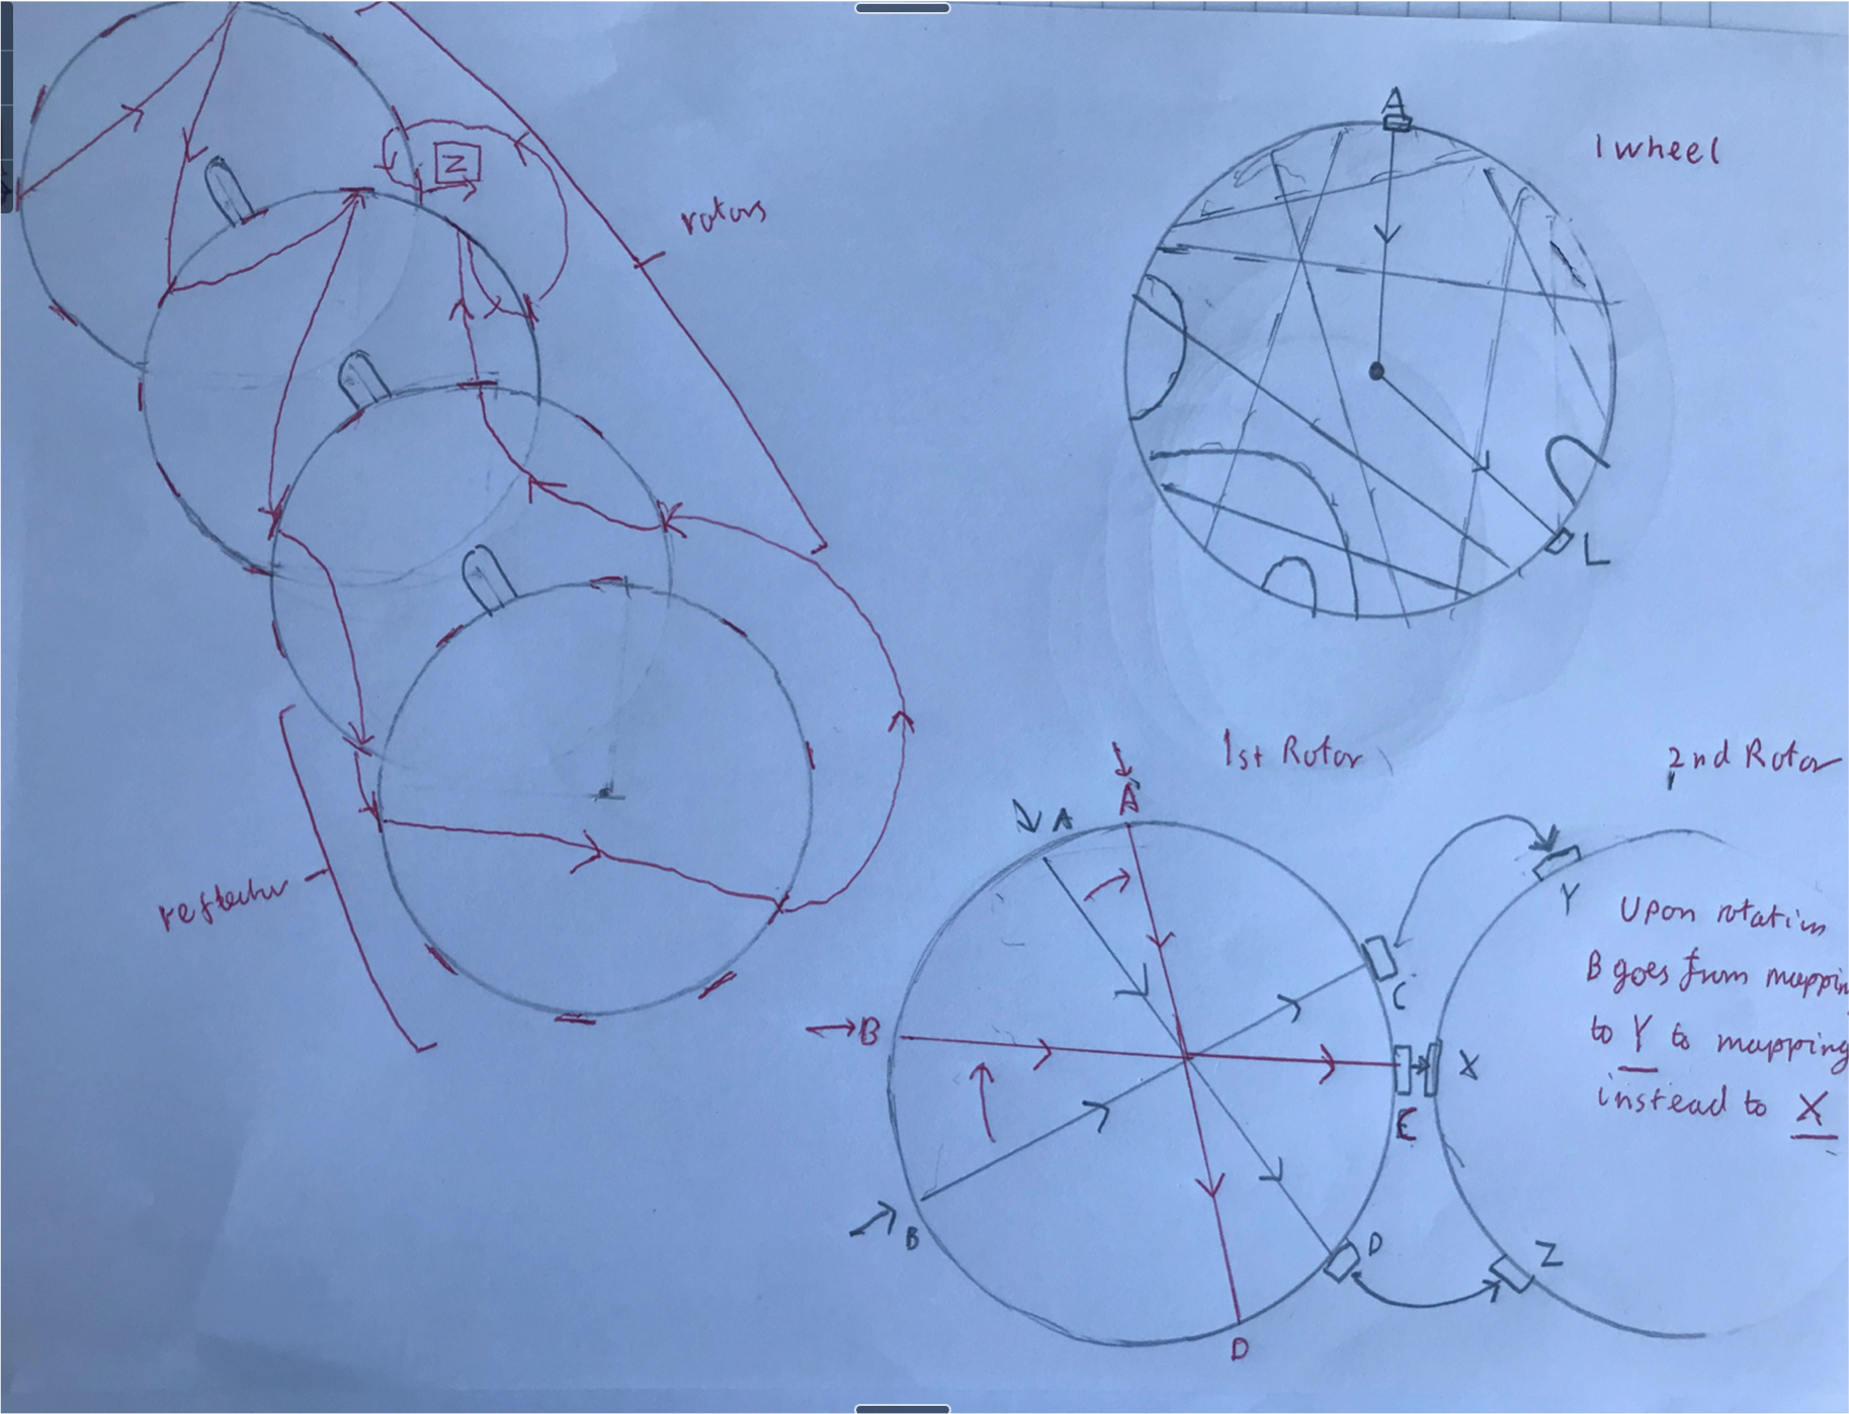 Z
rotors
reflector
A
1 wheel
L
1st Rotor
2nd Rotor
A
A
B
B
C
E
D
D
Y
X
Z
Upon rotation
B goes from mappin
to Y to mapping
instead to X